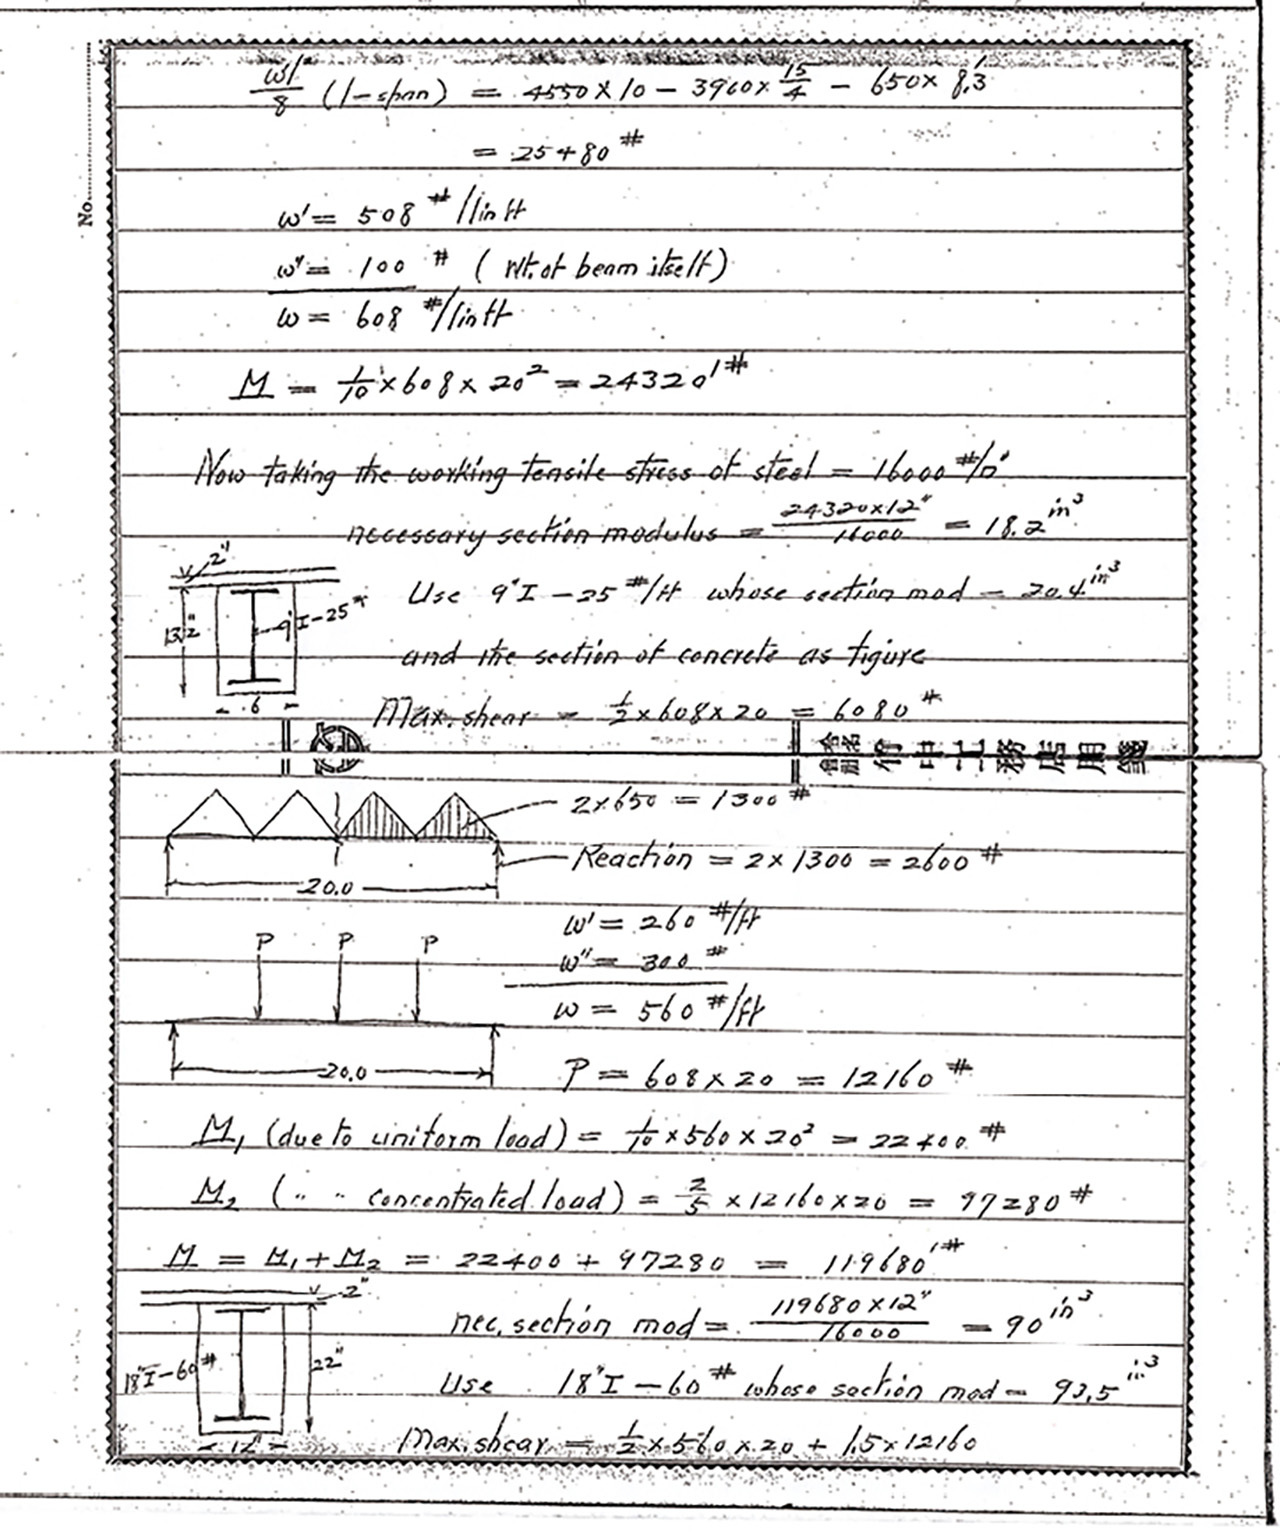 wl²/8 (l-span) = 4550 × 10 - 3960 × 15/4 - 650 × 8.3'
= 25480 #
w' = 508 #/lin ft
w" = 100 # (Wt. of beam itself)
w = 608 #/lin ft
M = 1/10 × 608 × 20² = 24320'#
No.
Now taking the working tensile stress of steel = 16000 #/□"
necessary section modulus = 24320×12"/16000 = 18.2 in³
2"
Use 9"I-25 #/ft whose section mod - 20.4 in³
13½"
9"I-25#
and the section of concrete as figure
6
Max. shear = ½ × 608 × 20 = 6080 #
合名會社 竹中工務店用箋
2×650 = 1300 #
Reaction = 2 × 1300 = 2600 #
20.0
w' = 260 #/ft
P P P
w" = 300 #
w = 560 #/ft
20.0
P = 608 × 20 = 12160 #
M₁ (due to uniform load) = 1/10 × 560 × 20² = 22400 #
M₂ (" " concentrated load) = 2/5 × 12160 × 20 = 97280 #
M = M₁ + M₂ = 22400 + 97280 = 119680'#
2"
nec, section mod = 119680×12"/16000 = 90 in³
18"I-60#
22"
Use 18"I-60 # whose section mod - 93.5 in³
12"
Max. shear = ½ × 560 × 20 + 1.5 × 12160